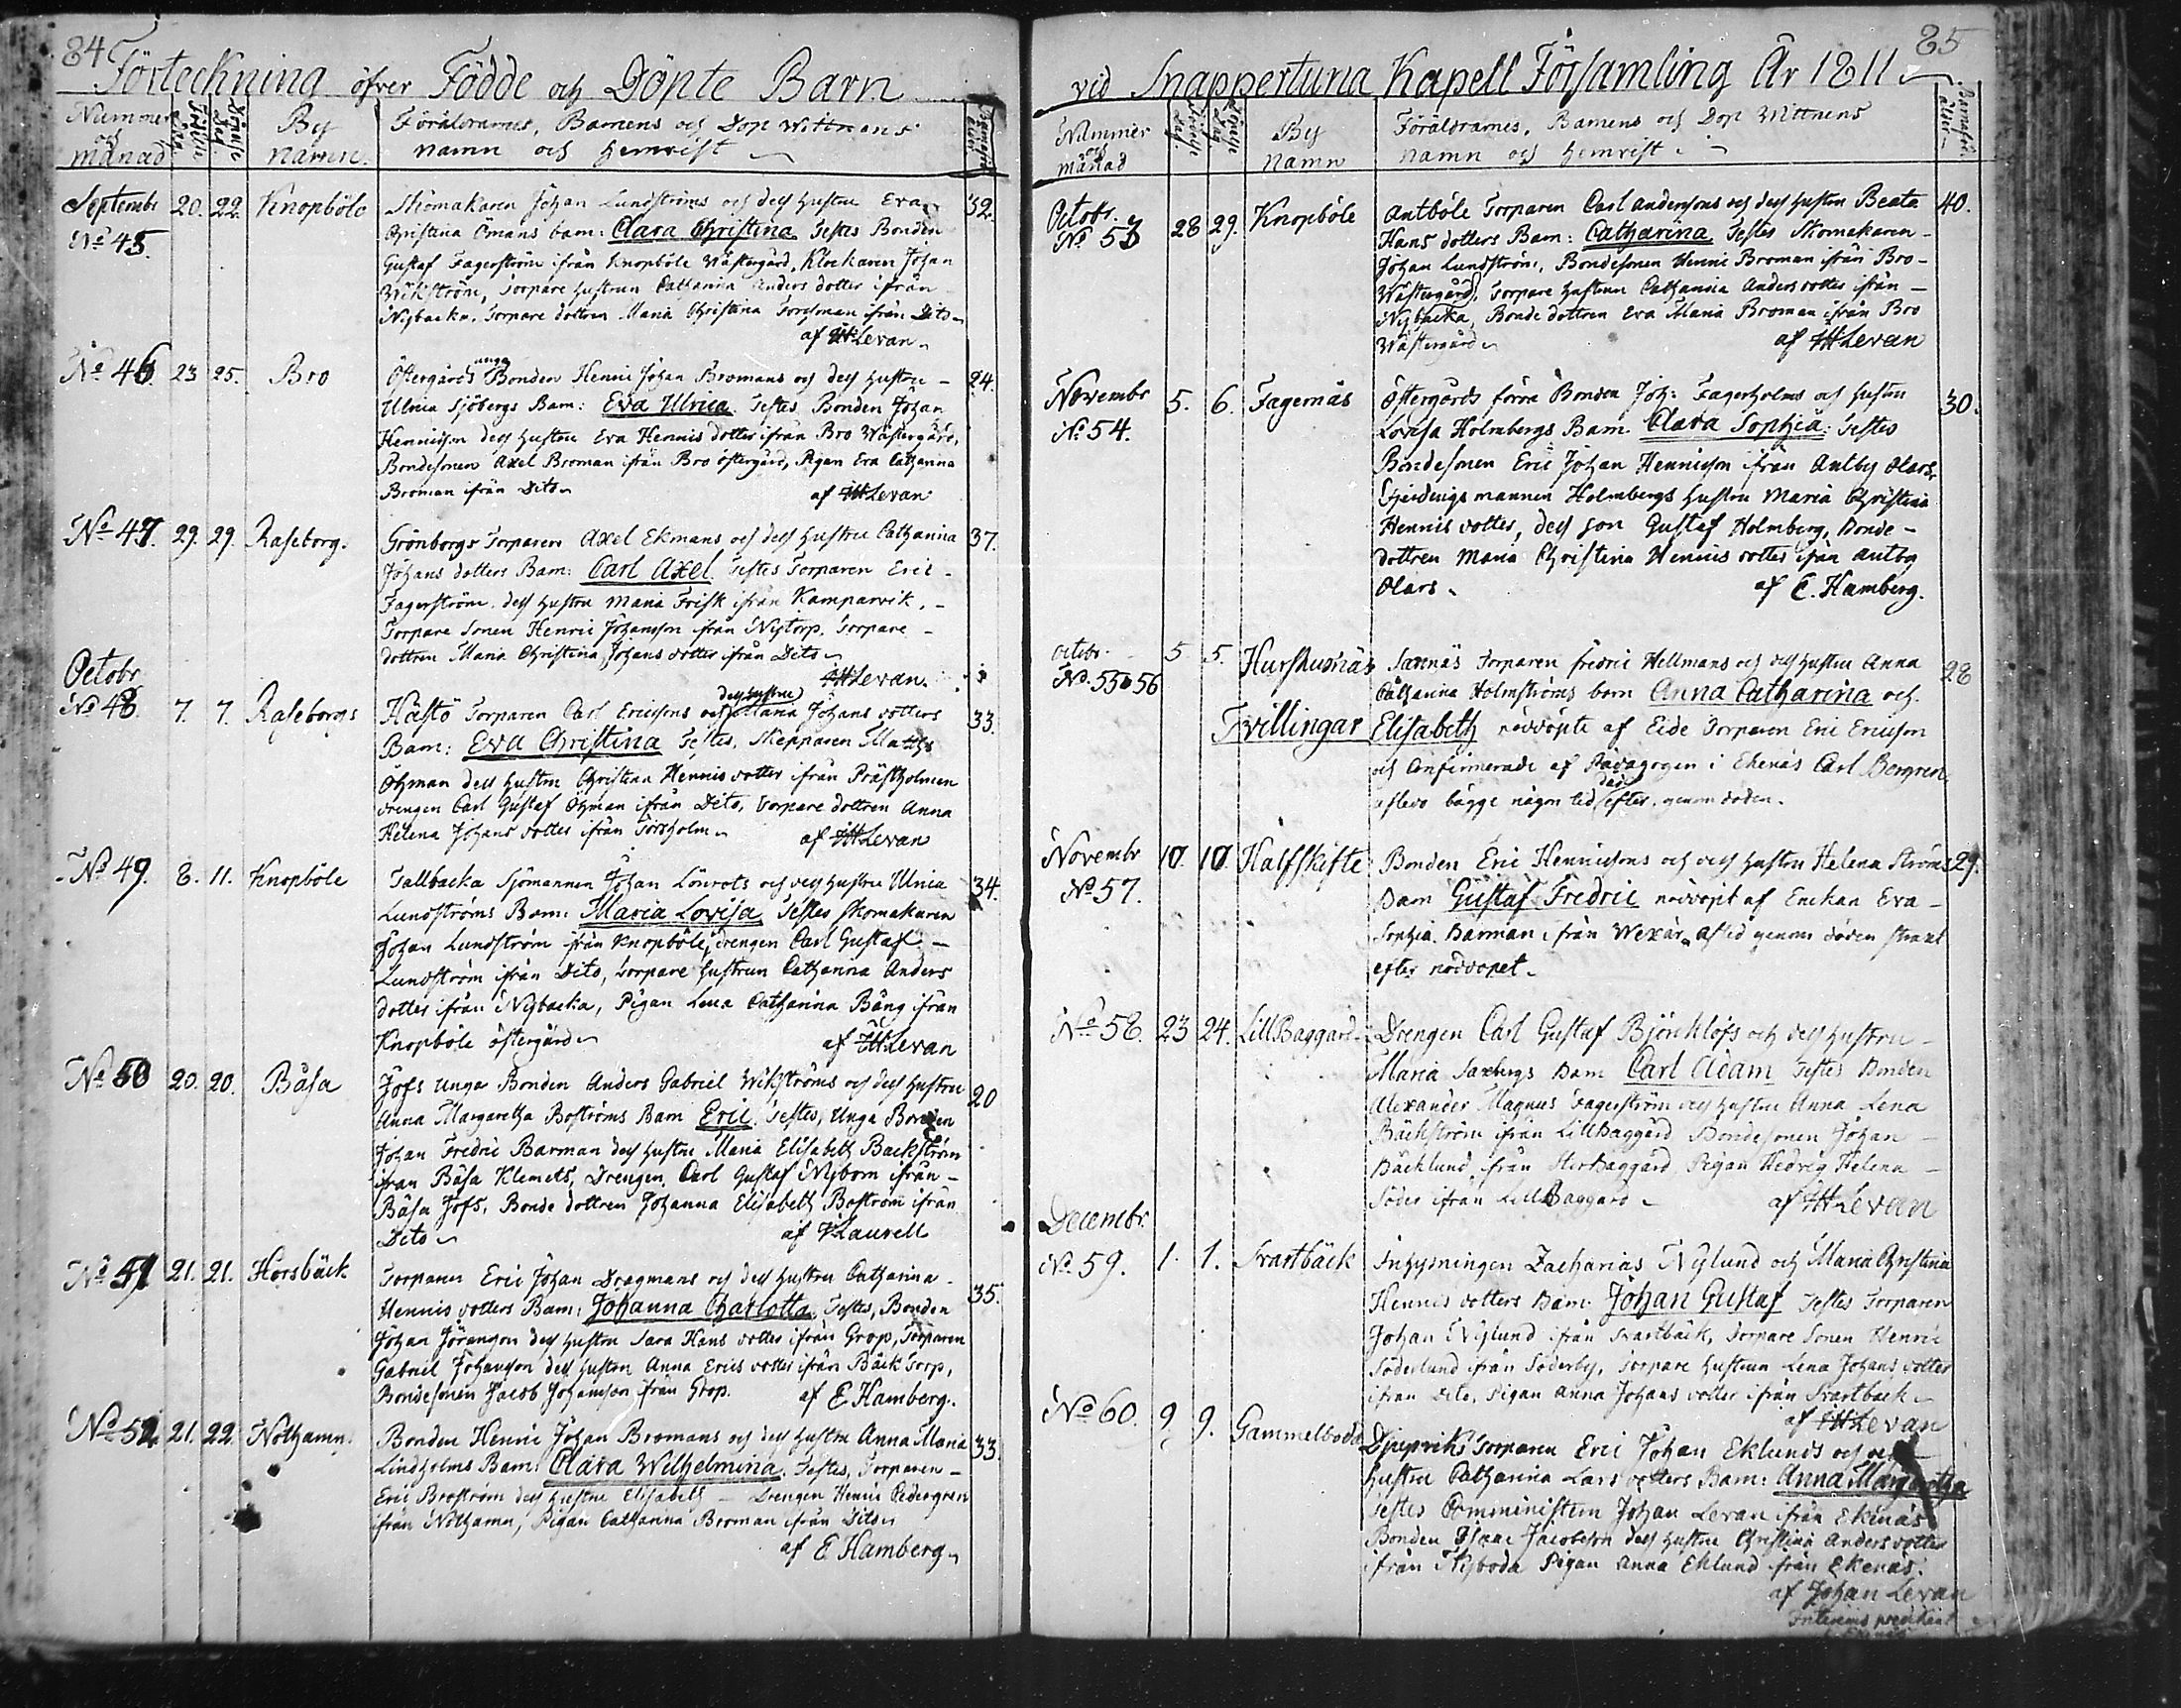 84
Förteckning öfver Födde och Döpte Barn
Nummer och månad
Födelse Dag.
Döpelse Dag
By namn.
Föräldrarnes, Barnens och Dop Wittnens
namn och hemvist
Septembr 20. 22. Knopböle Skomakaren Johan Lundströms och dess hustru Eva 32.
No 45. Christina Ömans barn: Clara Christina. Testes Bonden
Gustaf Fagerström ifrån Knopböle Wästergård, Klockaren Johan
Wikström, Torpare hustrun Catharina Anders dotter ifrån
Nybacka. Torpare dottren Maria Christina Forssman ifrån Dito
af JHLevan
No 46. 23 25. Bro Östergårds unga Bonden Henric Johan Bromans och dess hustru 24.
Ulrica Sjöbergs Barn: Eva Ulrica. Testes Bonden Johan
Henricsson dess hustru Eva Henrics dotter ifrån Bro Wästergård,
Bondesonen Axel Broman ifrån Bro östergård, Pigan Eva Catharina
Broman ifrån Dito
af JHLevan
No 47. 29. 29. Raseborg. Grönborgs Torparen Axel Ekmans och dess hustru Catharina 37.
Johans dotters Barn: Carl Axel. Testes Torparen Eric
Fagerström, dess hustru Maria Frisk ifrån Kamparvik,
Torpare Sonen Henric Johansson ifrån Nytorp, Torpare
dottren Maria Christina Johans dotter ifrån Dito
JHLevan.
Octobr
No 48. 7. 7. Raseborgs Hästö Torparen Carl Ericssons och dess hustru Maria Johans dotters 33.
Barn: Eva Christina Testes, Skepparen Matths
Öhman dess hustru Christina Henrics dotter ifrån Prästholmen
drengen Carl Gustaf Öhman ifrån Dito, Torpare dottren Anna
Helena Johans dotter ifrån Torsholm
af JHLevan
No 49. 8. 11. Knopböle Tallbacka Sjömannen Johan Lönrots och dess hustru Ulrica 34.
Lundströms Barn: Maria Lovisa Testes Skomakaren
Johan Lundström ifrån Knopböle, drengen Carl Gustaf
Lundström ifrån Dito, Torpare hustrun Catharina Anders
dotter ifrån Nybacka, Pigan Lena Catharina Bäng ifrån
Knopböle östergård
af JHLevan
No 50 20. 20. Båsa Jofs unga Bonden Anders Gabriel Wikströms och dess hustru 20
Anna Margaretha Boströms Barn Eric. Testes, Unga Bonden
Johan Fredric Barman dess hustru Maria Elisabeth Backström
ifrån Båsa Klemets, Drengen Carl Gustaf Nybom ifrån
Båsa Jofs, Bonde dottren Johanna Elisabeth Boström ifrån
Dito
af Laurell
No 51 21. 21. Horsbäck Torparen Eric Johan Dragmans och dess hustru Catharina 35.
Henrics dotters Barn: Johanna Charlotta. Testes, Bonden
Johan Göransson dess hustru Sara Hans dotter ifrån Grop, Torparen
Gabriel Johansson dess hustru Anna Erics dotter ifrån Bäck torp,
Bondesonen Jacob Johansson ifrån Grop.
af E Hamberg.
No 52 21. 22. Nothamn. Bonden Henric Johan Bromans och dess hustru Anna Maria 33
Lindholms Barn: Clara Wilhelmina. Testes, Torparen
Eric Broström dess hustru Elisabeth — Drengen Henric Cedergren
ifrån Nothamn, Pigan Catharina Broman ifrån Dito
af E Hamberg
85
vid Snappertuna Kapell Församling År 1811
Nummer och månad
Födelse Dag.
Döpelse Dag
By namn
Föräldrarnes, Barnens och Dop Wittnens
namn och hemvist
Octobr. No 53 28 29. Knopböle Antböle Torparen Carl Anderssons och dess hustru Beata 40.
Hans dotters Barn: Catharina Testes Skomakaren
Johan Lundström, Bondesonen Henric Broman ifrån Bro
Wästergård, Torpare hustrun Catharina Anders dotter ifrån
Nybacka, Bonde dottren Eva Maria Broman ifrån Bro
Wästergård
af JHLevan
Novembr No 54. 5. 6. Fagernäs Östergårds förra Bonden Joh: Fagerholms och hustru 30.
Lovisa Holmbergs Barn Clara Sophia: Testes
Bondesonen Eric Johan Henricsson ifrån Antby Olars,
Fjerdingsmannen Holmbergs hustru Maria Christina
Henrics dotter, dess son Gustaf Holmberg, Bonde
dottren Maria Christina Henrics dotter ifrån Antby
Olars.
af E. Hamberg.
Octobr. No. 55 o 56 5 5. Hurskusnäs Saxnäs Torparen Fredric Hellmans och dess hustru Anna 28
Catharina Holmströms barn Anna Catharina och
Tvillingar Elisabeth nöddöpte af Eide Torparen Eric Ericsson
och Confirmerade af Pædagogen i Ekenäs Carl Bergren
aflevo bägge någon tid der efter, genom döden.
Novembr No 57. 10. 10. Halfskifte Bonden Eric Henricssons och dess hustru Helena Ströms 29.
Barn Gustaf Fredric nöddöpt af Enckan Eva
Sophia Barman ifrån Wexär, afled genom döden straxt
efter nöddopet
No 58. 23 24. LillBaggård Drengen Carl Gustaf Björklöfs och dess hustru
Maria Saxbergs Barn Carl Adam Testes Bonden
Alexander Magnus Fagerström dess hustru Anna Lena
Bäckström ifrån LillBaggård Bondesonen Johan
Bäcklund ifrån StorBaggård, Pigan Hedvig Helena
Söder ifrån LillBaggård
af JHLevan
Decembr.
No 59. 1. 1. Svartbäck Inhysningen Zacharias Nylund och Maria Christina
Henrics dotters Barn Johan Gustaf Testes Torparen
Johan Nylund ifrån Svartbäck, Torpare Sonen Henric
Söderlund ifrån Söderby, Torpare hustrun Lena Johans dotter
ifrån Dito, Pigan Anna Johans dotter ifrån Svartback
af JHLevan
No 60. 9 9. Gammelboda Torparen Eric Johan Eklunds och dess
hustru Catharina Lars dotters Barn: Anna Margaretha
Testes Comministern Johan Levan ifrån Ekenäs
Bonden Isaac Jacobsson dess hustru Christina Anders dotter
ifrån Nyboda Pigan Anna Eklund ifrån Ekenäs.
af Johan Levan